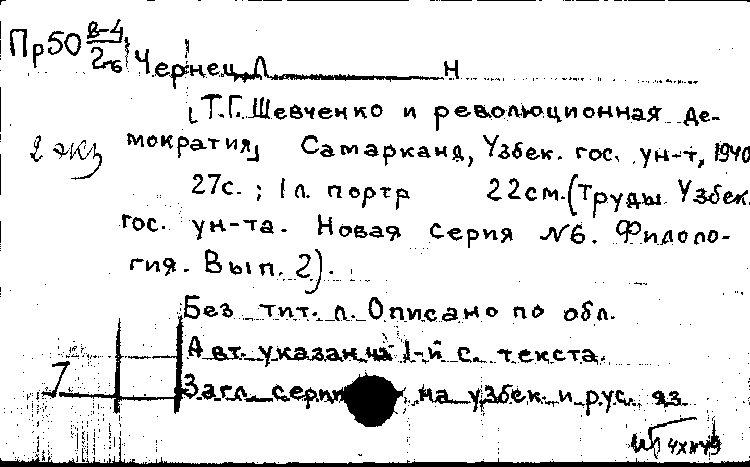 Пр50 в-4/2-6
Чернец, Л. Н
[Т.Г. Шевченко и революционная де-
мократия] Самарканд, Узбек. гос. ун-т, 1940
2 экз
27с.; 1 л. портр 22см. (Труды Узбек.
гос. ун-та. Новая серия №6. Филоло-
гия. Вып. 2).
Без тит. л. Описано по обл.
Авт. указан на 1-й с. текста.
Загл. серии на узбек. и рус. яз
1